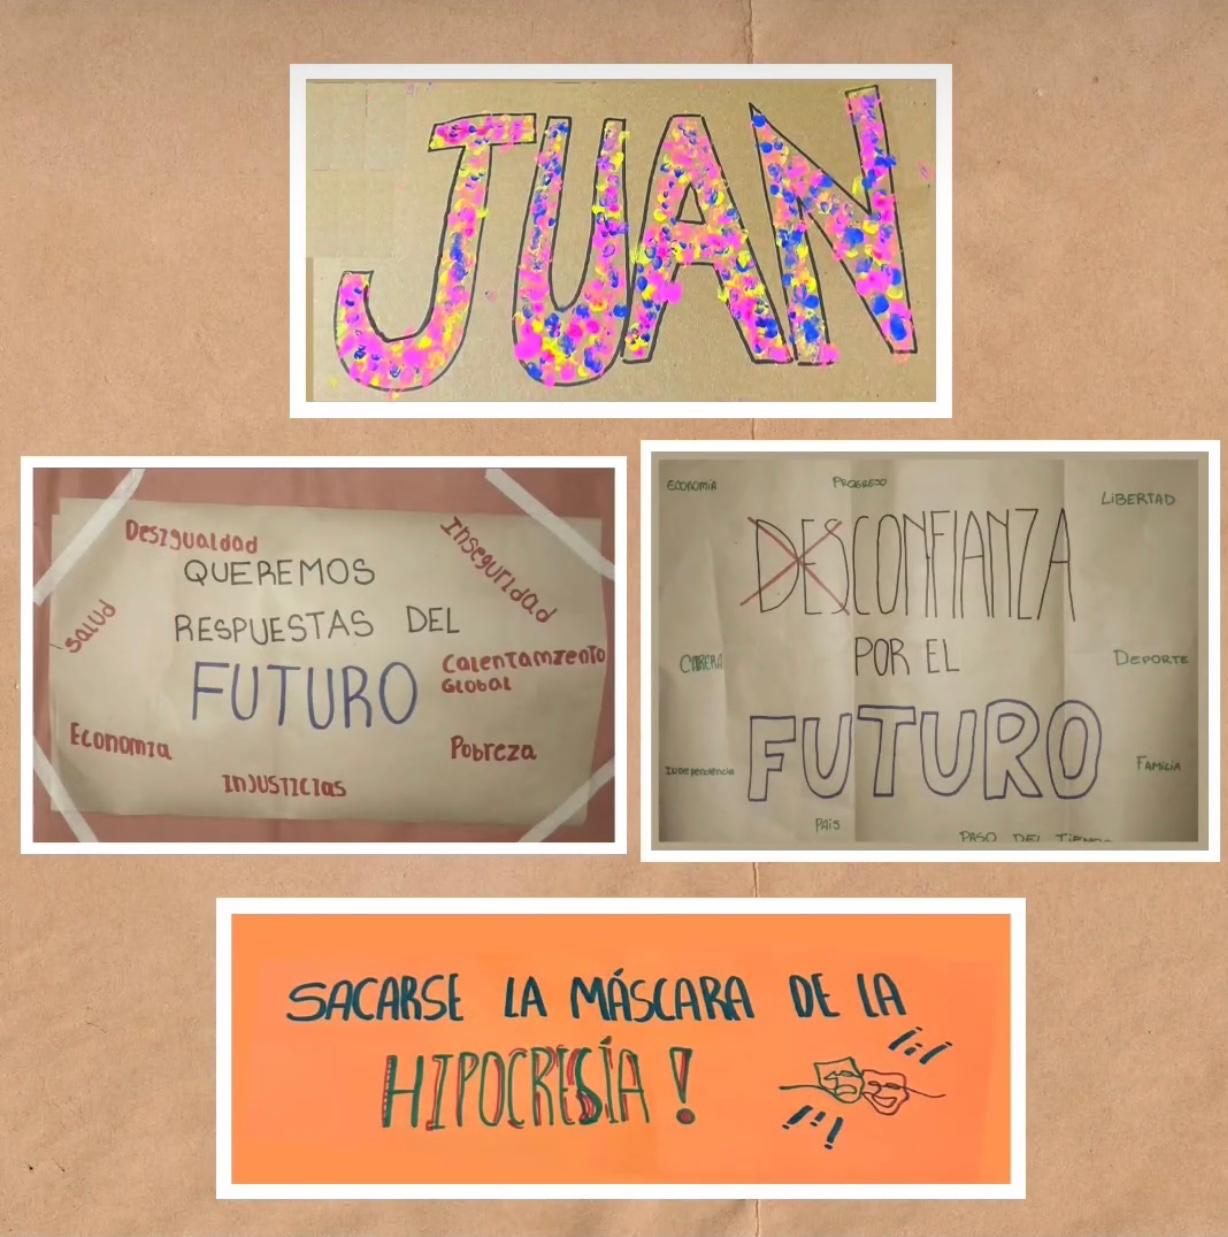 JUAN
Desigualdad
Inseguridad
QUEREMOS
Salud
RESPUESTAS DEL
FUTURO
Calentamiento
Global
Economia
Pobreza
Injusticias
ECONOMIA
PROGRESO
LIBERTAD
DESCONFIANZA
POR EL
DEPORTE
FUTURO
Independencia
FAMILIA
PAIS
PASO DEL TIEMPO
SACARSE LA MÁSCARA DE LA
HIPOCRESÍA !